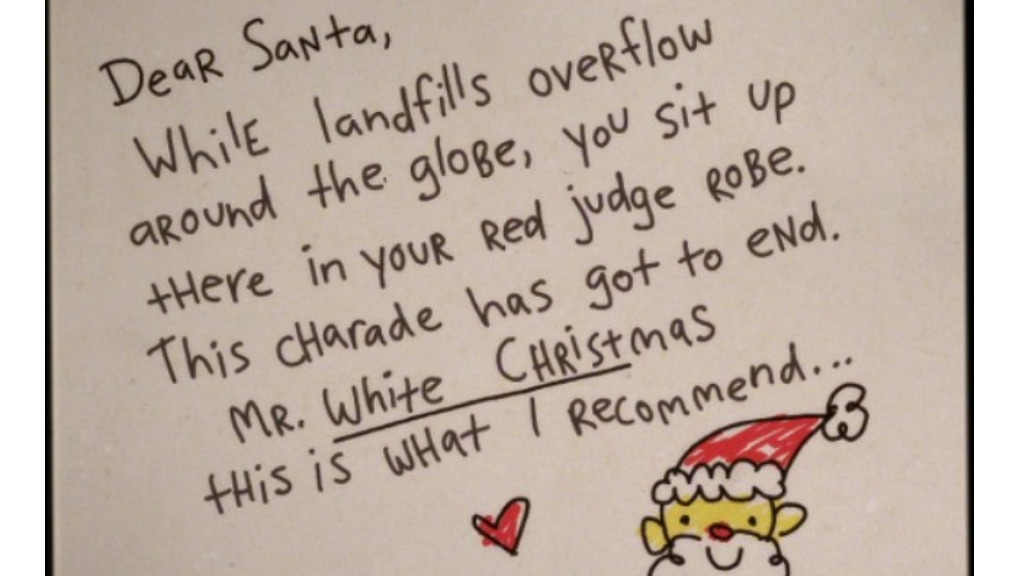 Dear Santa,
While landfills overflow
around the globe, you sit up
there in your red judge robe.
This charade has got to end.
Mr. White Christmas
this is what I recommend...